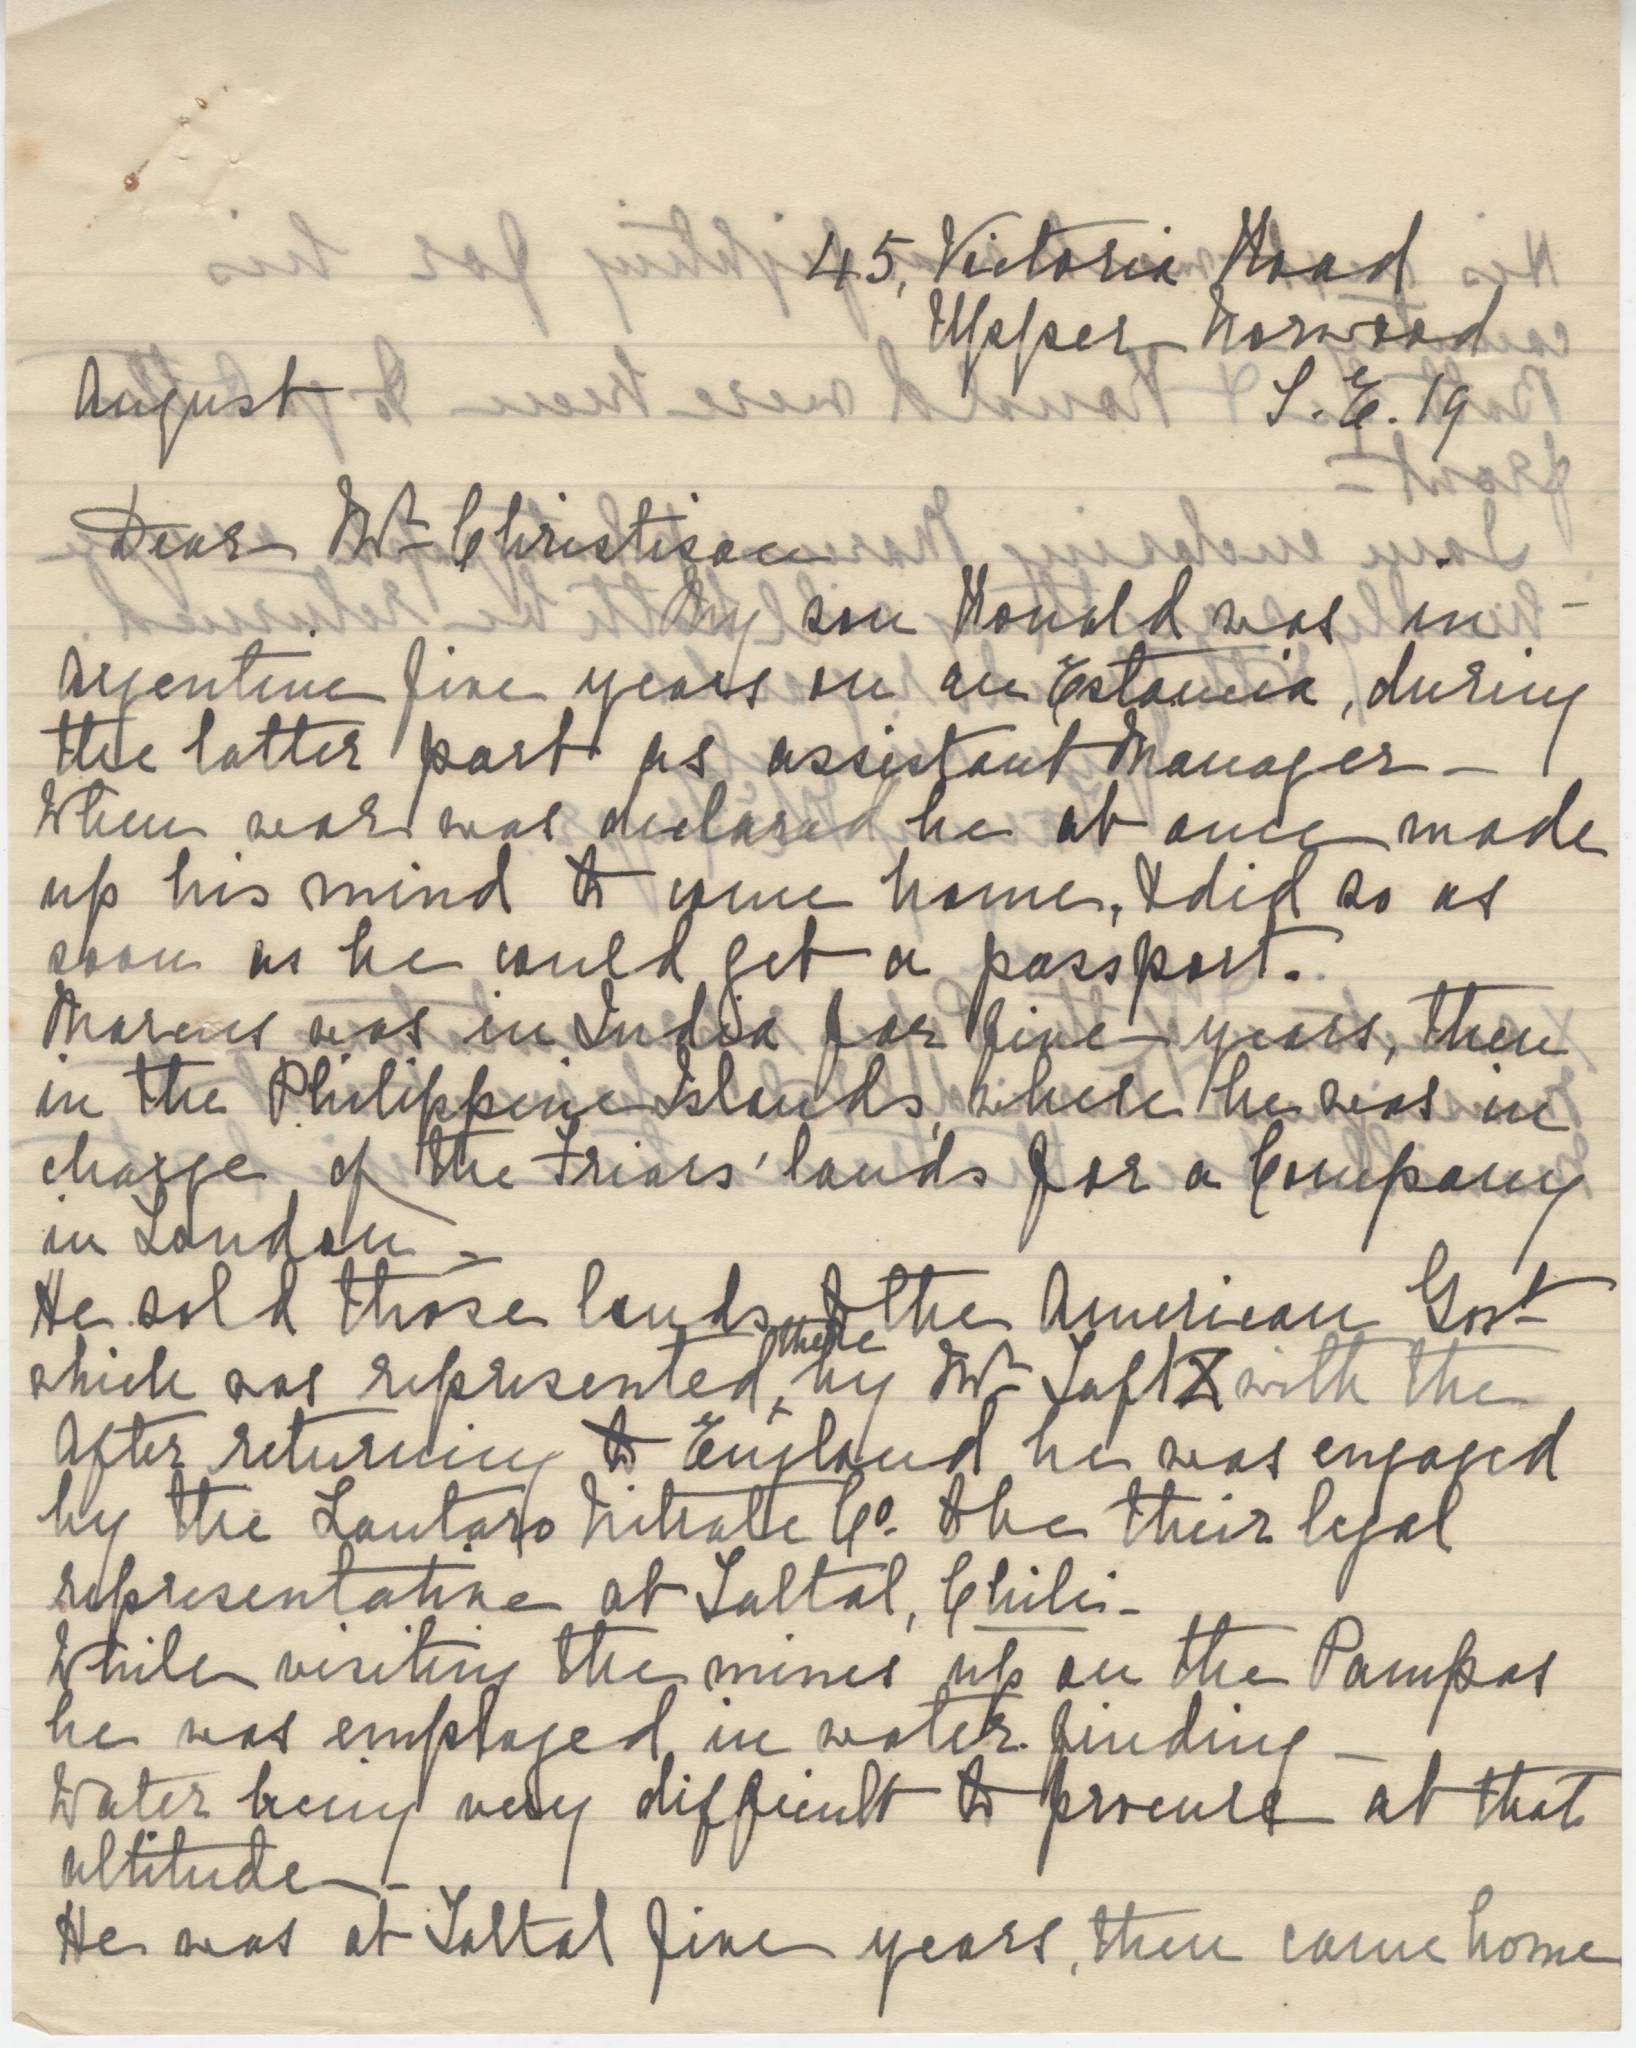 45, Victoria Road
Upper Norwood
August S.E. 19
Dear Mr Christison
My son Ronald was in
Argentine five years on an Estancia, during
the latter part as assistant Manager -
When war was declared he at once made
up his mind to come home, & did so as
soon as he could get a passport.
Marcus was in India for five years, then
in the Philippine Islands, where he was in
charge of the Friars' lands for a Company
in London -
He sold those lands to the American Govt
which was represented, there by Mr Taft X with the
After returning to England he was engaged
by the Lautaro Nitrate Co. to be their legal
representative at Taltal, Chili -
While visiting the mines up on the Pampas
he was employed in water finding -
Water being very difficult to procure at that
altitude -
He was at Taltal five years, then came home